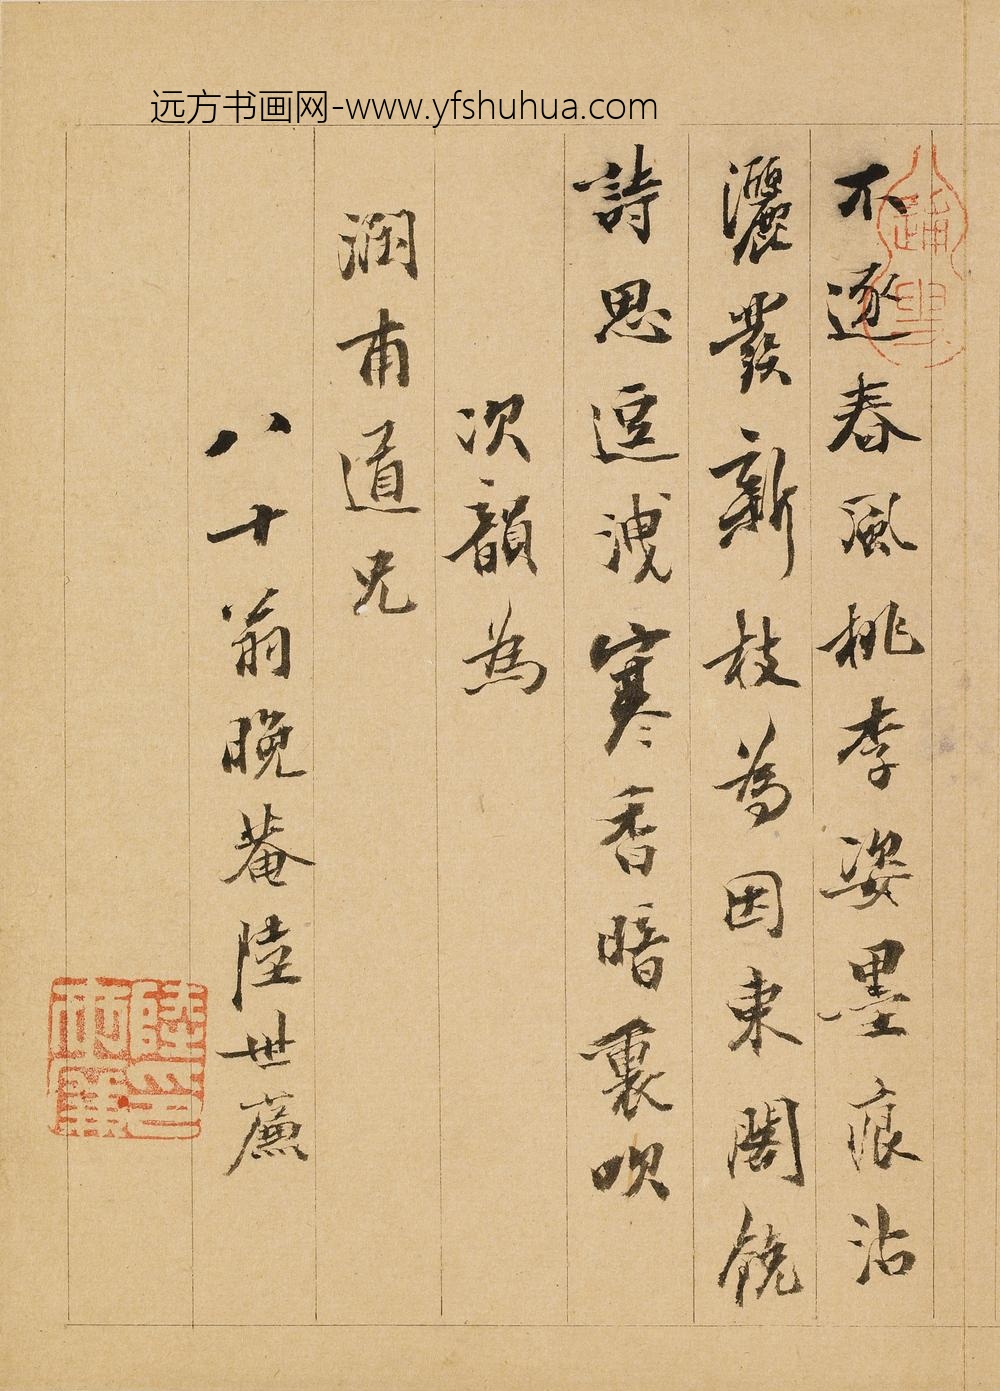 远方书画网-www.yfshuhua.com
不逐春風桃李姿墨痕沾
灑發新枝為因東閣饒
詩思逗洩寒香暗裏吹
次韻為
潤甫道兄
八十翁晚菴陸世廉